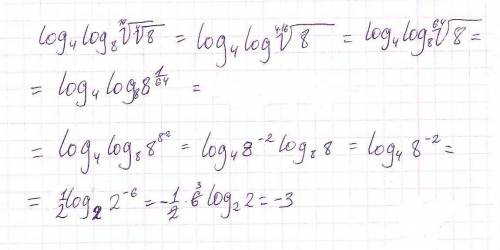 log₄ log₈ ¹⁶√⁴√8 = log₄ log ⁴·¹⁶√8 = log₄ log₈ ⁶⁴√8 =
= log₄ log₈ 8^(1/64) =
= log₄ log₈ 8^(8⁻²) = log₄ 8⁻² log₈ 8 = log₄ 8⁻² =
= 1/2 log₂ 2⁻⁶ = -1/2 · 6 3 log₂ 2 = -3